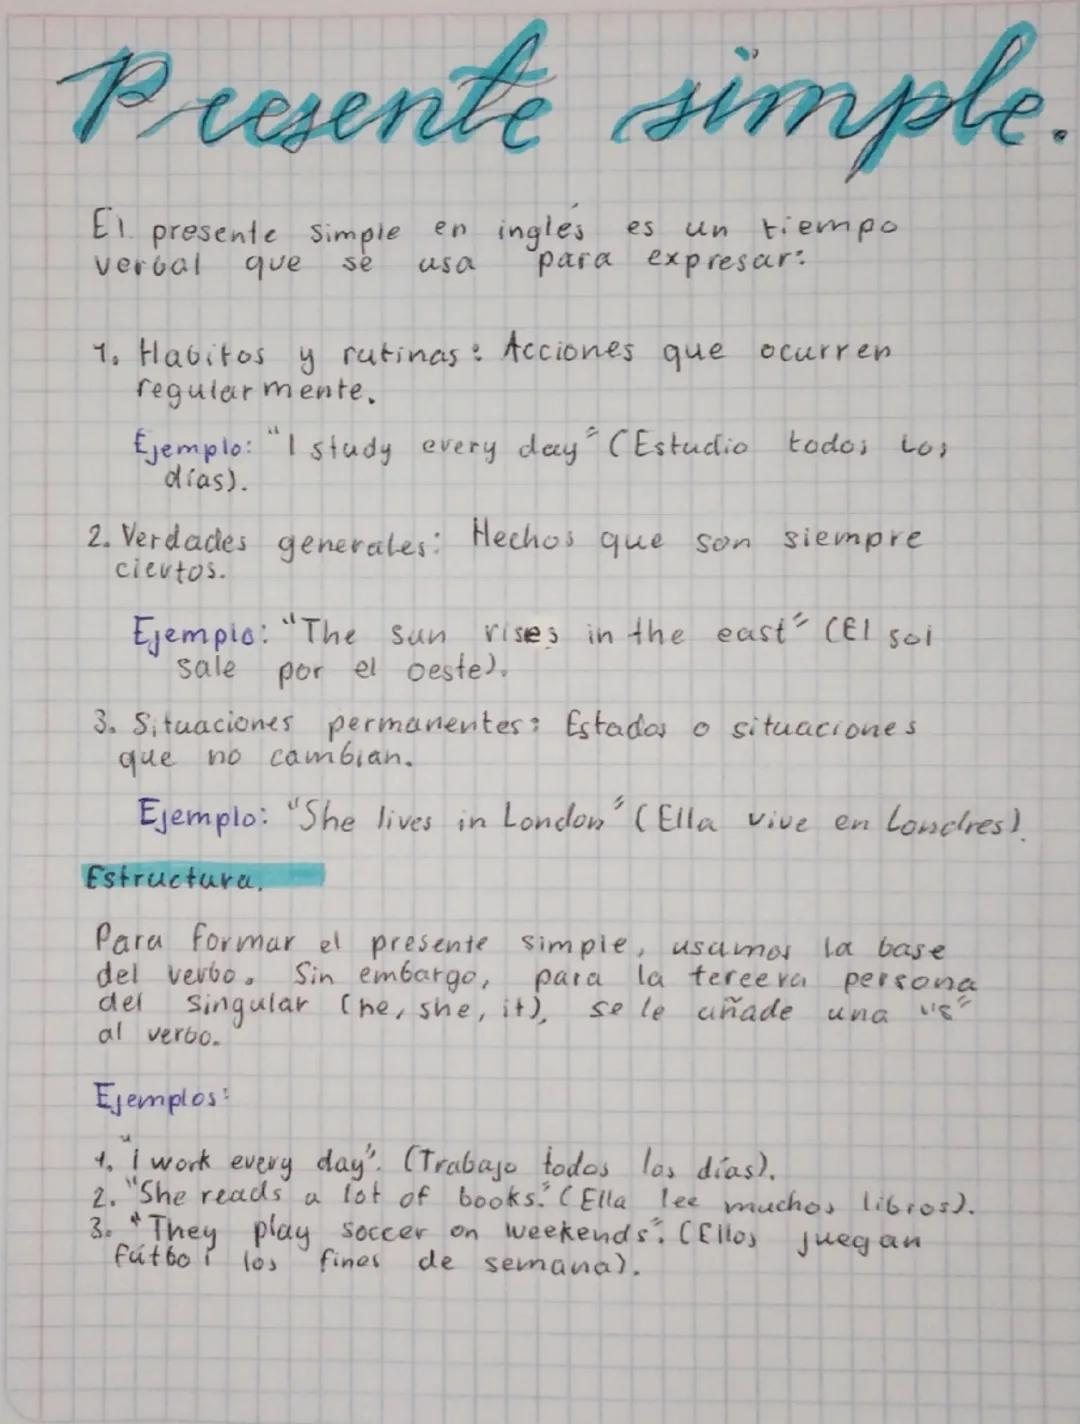 Presente simple.
El presente simple en inglés es un tiempo
verbal que se usa para expresar:
1. Habitos y rutinas: Acciones que ocurren
regularmente.
Ejemplo: "I study every day" (Estudio todos los
días).
2. Verdades generales: Hechos que son siempre
ciertos.
Ejemplo: "The sun rises in the east" (El sol
sale por el oeste).
3. Situaciones permanentes: Estados o situaciones
que no cambian.
Ejemplo: "She lives in London" (Ella vive en Londres).
Estructura.
Para formar el presente simple, usamos la base
del verbo. Sin embargo, para la tercera persona
del singular (he, she, it), se le añade una "s"
al verbo.
Ejemplos:
1. "I work every day". (Trabajo todos los días).
2. "She reads a lot of books." (Ella lee muchos libros).
3. "They play soccer on weekends". (Ellos juegan
fútbol los fines de semana).